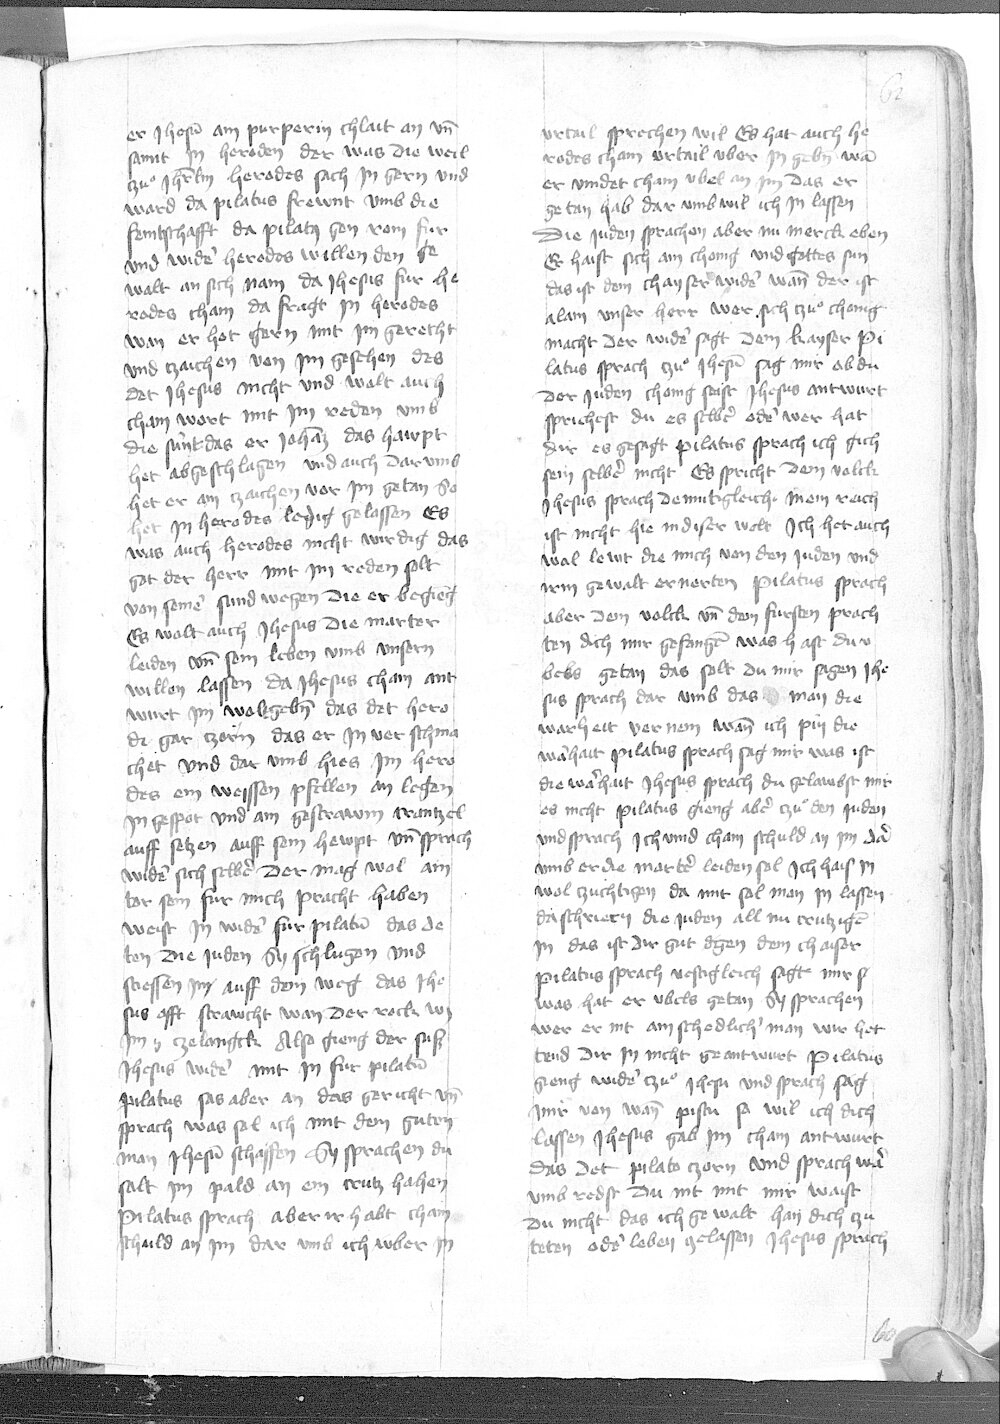 62
er Jhesu̅ am purperin chlait an vn̅
samit Jn heroden der was die weil
czuͦ Jhrl̅m herodes sach Jn gern vnd
ward da pilatus frewnt vmb die
feintschafft da pilatus gen rom fur
vnd wider herodes willen den ge
walt an sich nam da Jhesus fur he
rodes cham da fragt Jn herodes
wan er het gern mit Jm gerecht
vnd czaichen von Jm gesehen des
det Jhesus nicht vnd wolt auch
cham wort mit Jm reden vmb
die sunt das er Johan̅ das hawpt
het abgeschlagen vnd auch dar vmb
het er am czaichen vor Jm getan So
het Jn herodes ledig gelassen Es
was auch herodes nicht wirdig das
got der herr mit Jm reden solt
von seine̅ sund wegen die er begieng
Es wolt auch Jhesus die marter
leiden vn̅ sein leben vmb vnsern
willen lassen da Jhesus cham ant
wurt Jm wolt gebn̅ das det hero
di gar czorn das er Jn ver schma
chet vnd dar vmb hies Jm hero
des ein weissen pfellen an legen
Jn gespot vnd am gestrawm crantzel
auff setzen auff sein hewpt vn̅ sprach
wider sich selber Der mag wol ain
tor sein fur mich pracht haben
weist Jn wider fur pilatu̅ das de
ten die juden Sy schlugen vnd
stiessen Jn auff dem weg das Jhe
sus offt strawcht wan der rock wz
Jm z czelangck Also gieng der suß
Jhesus wider mit Jn fur pilatu̅
pilatus sas aber an das gericht vn̅
sprach was sol ich mit dem guten
man Jhesu̅ schaffen Sy sprachen du
salt Jm pald an ein crutz hahen
Pilatus sprach aber ir habt cham
schuld an Jm dar vmb ich vber Jn
vrtail sprechen wil Es hat auch he
rodes cham vrtail vber Jn gebn̅ wa̅
er vindet cham vbel an Jm das er
getan hab dar vmb wil ich Jn lassen
Die juden sprachen aber nu merck eben
Er haist sich am chonig vnd gottes sun
das ist dem chayser wider wan̅ der ist
alain vnser herr wer sich czuͦ chonig
macht der wider sagt dem kayser Pi
latus sprach czuͦ Jhesu̅ sag mir ob du
der juden chonig seist Jhesus antwurt
sprichest du es selber oder wer hat
dir es gesagt pilatus sprach ich gich
sein selber nicht Es spricht dem volck
Jhesus sprach demutigleich mein reich
ist nicht hie in diser welt Ich het auch
wol lewt die mich von den juden vnd
irm gewalt ernerten Pilatus sprach
aber dem volck vn̅ den fursten prach
ten dich mir gefangen̅ was hast du v
bels getan das solt du mir sagen Jhe
sus sprach dar vmb das man die
warheit vernem wan̅ ich pin die
warhait pilatus sprach sag mir was ist
die warhait Jhesus sprach du gelawbst mir
es nicht pilatus gieng aber czuͦ den juden
vnd sprach Ich vind cham schuld an Jm dar
vmb er die marter leiden sol Ich hais Jn
wol czuchtigen da mit sol man Jn lassen
da schriern die juden all nu crutzige̅
Jn das ist dir gut gegen dem chaiser
pilatus sprach vestigleich sagt mir
was hat er vbels getan Sy sprachen
wer er nit am schedlicher man wir het
tend dir Jn nicht geantwurt Pilatus
gieng wider czuͦ Jhesu vnd sprach sag
mir von wan̅ pistu so wil ich dich
lassen Jhesus gab Jm cham antwurt
das det pilato czorn vnd sprach war
vmb redst du nit mit mir waist
du nicht das ich gewalt han dich czu
teten oder leben gelassen Jhesus sprach